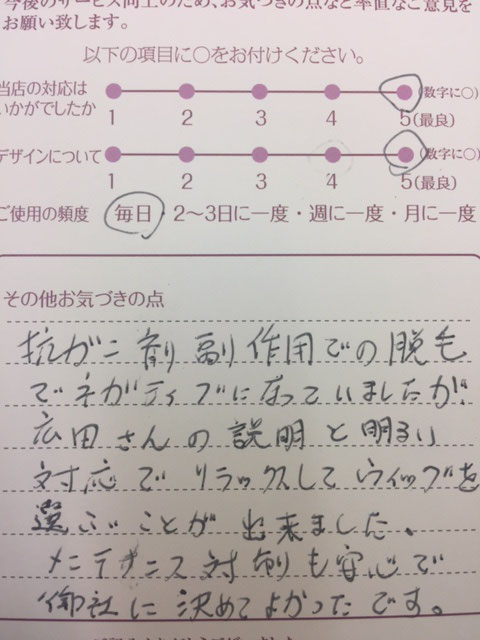 今後のサービス向上のため、お気づきの点など率直なご意見を
お願い致します。
以下の項目に○をお付けください。
当店の対応は
いかがでしたか
(数字に○)
1 2 3 4 5(最良)
デザインについて
(数字に○)
1 2 3 4 5(最良)
ご使用の頻度 毎日・2〜3日に一度・週に一度・月に一度
その他お気づきの点
抗がン剤副作用での脱毛
でネガティブになっていましたが
広田さんの説明と明るい
対応でリラックスしてウィッグを
選ぶことが出来ました。
メンテナンス対制も安心で
御社に決めてよかったです。